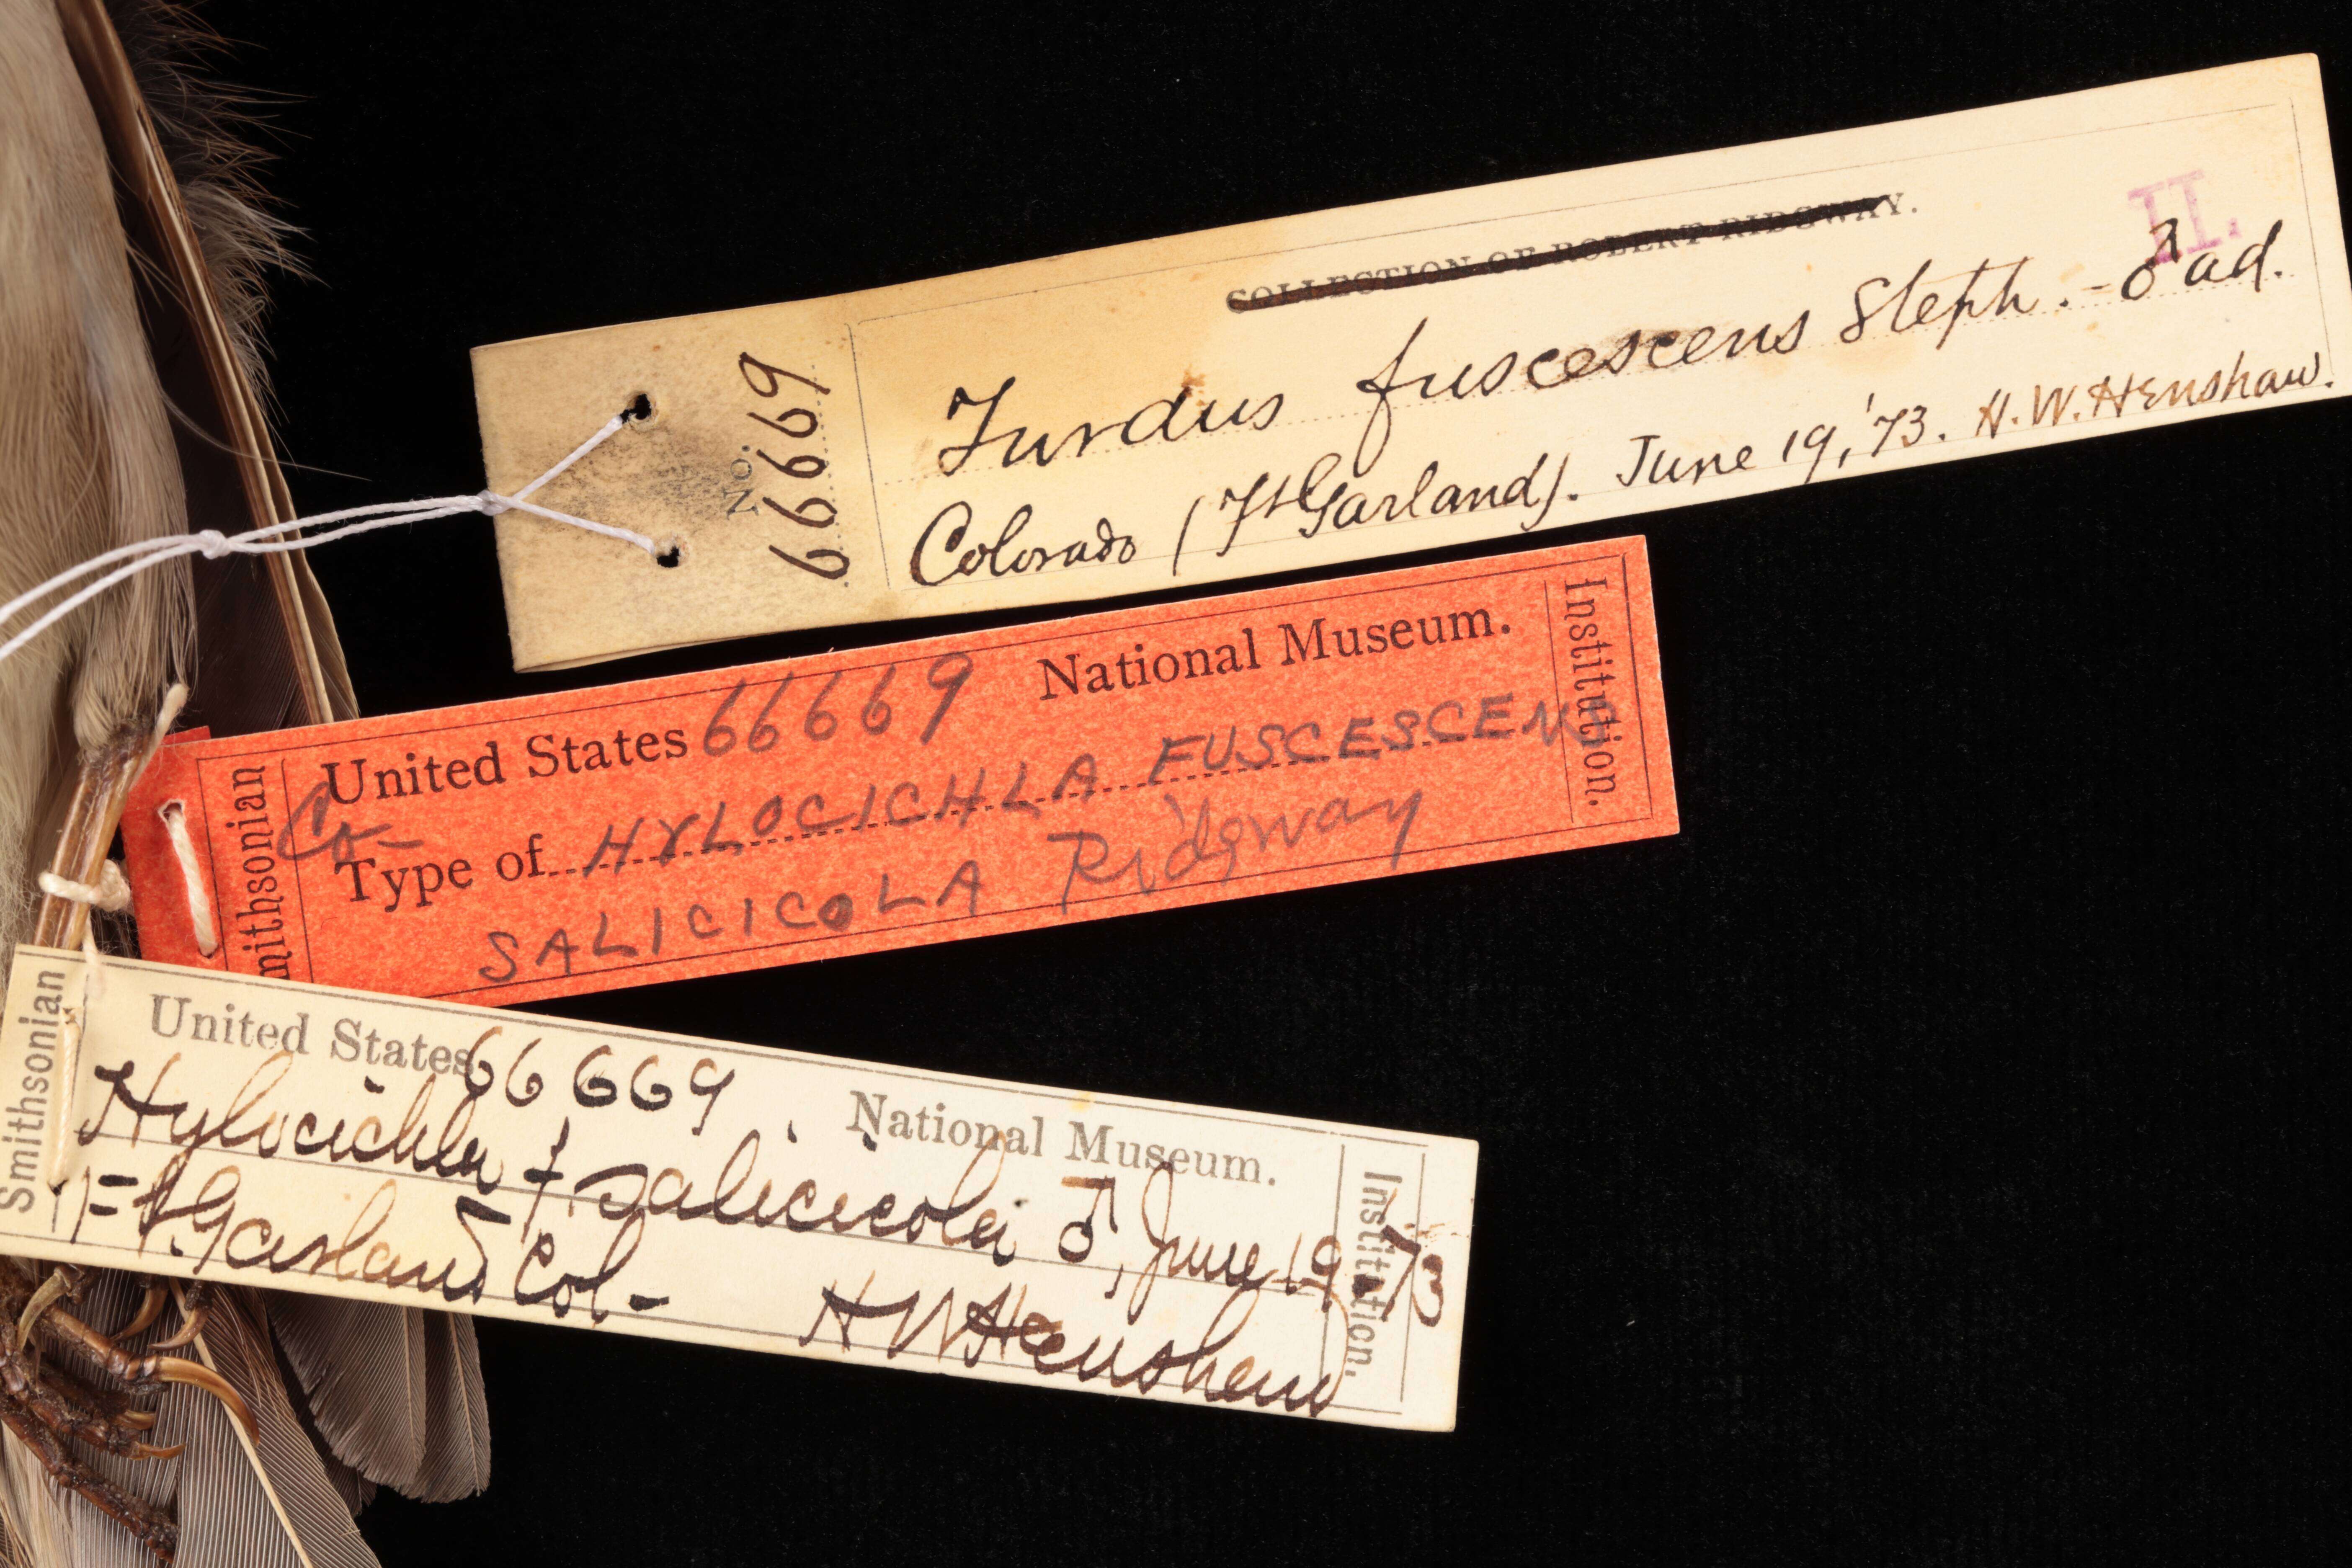 COLLECTION OF ROBERT RIDGWAY.
II.
No. 66669
Turdus fuscescens Steph. - ♂ ad.
Colorado (Ft Garland). June 19, '73. H. W. Henshaw.
United States 66669 National Museum.
Smithsonian
Institution.
Co-
Type of HYLOCICHLA FUSCESCENS
SALICICOLA Ridgway
United States 66669 National Museum.
Smithsonian
Institution.
Hylocichla f. salicicola ♂, June 19, 73
Ft. Garland Col- H W Henshaw